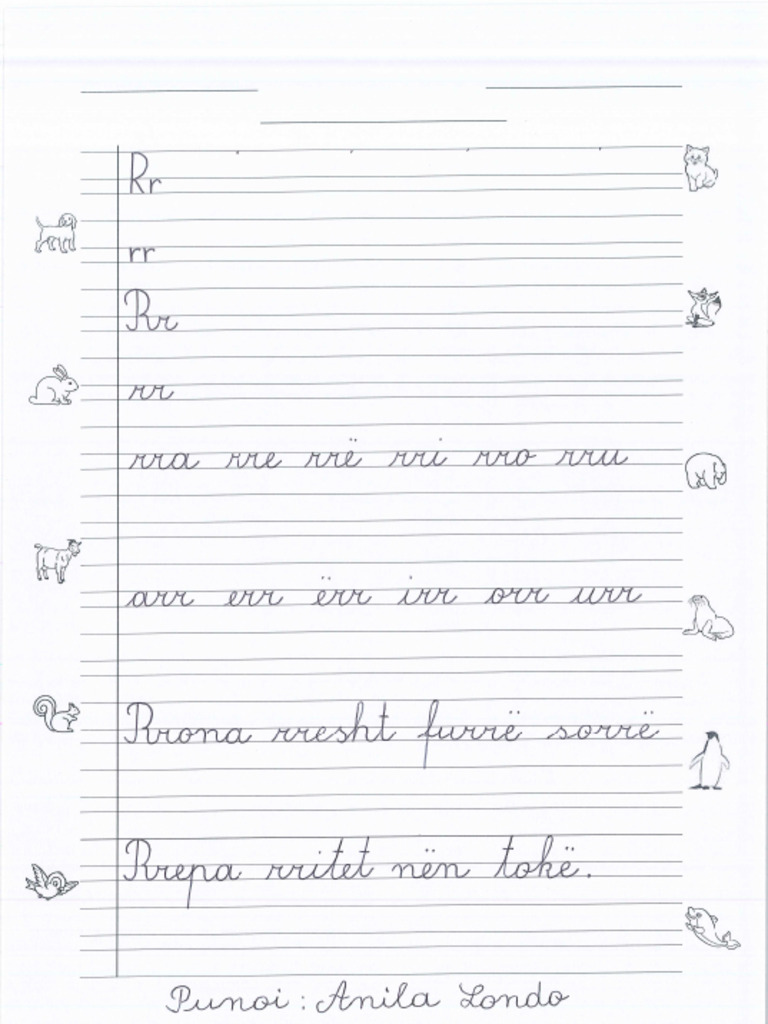 Rr
rr
Rr
rr
rra rre rrë rri rro rru
arr err ërr irr orr urr
Rrona rresht furrë sorrë
Rrepa rritet nën tokë.
Punoi : Anila Londo